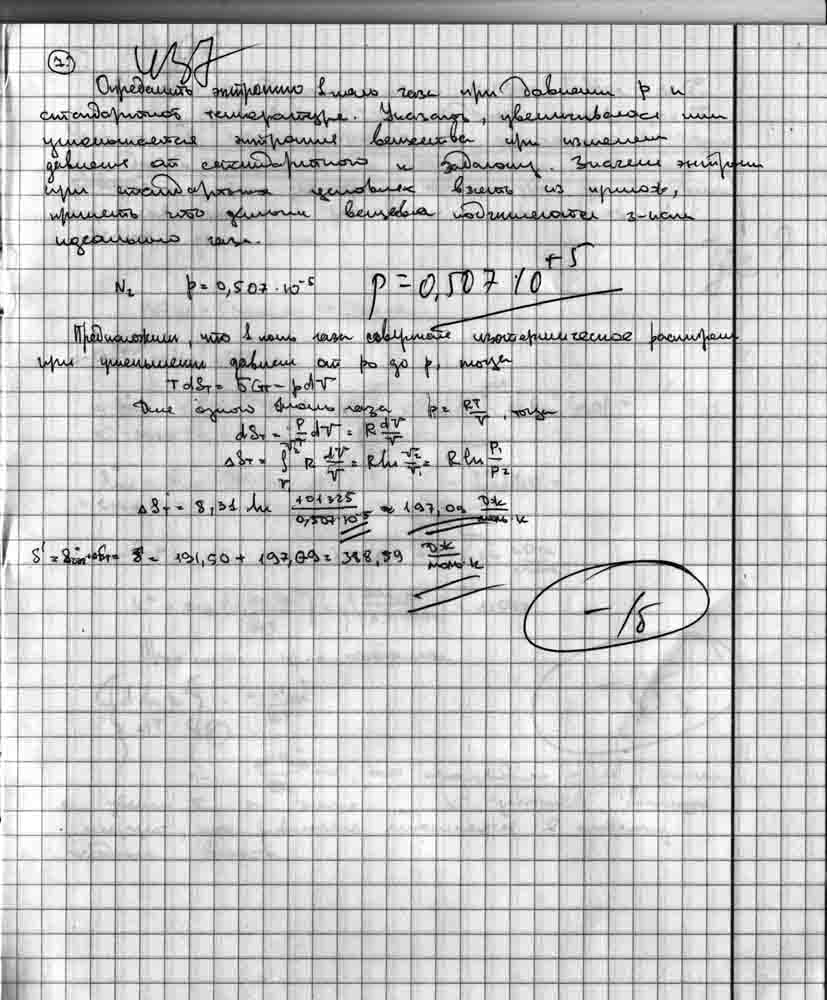 7.
Определить энтропию 1 моль газа при давлении p и
стандартной температуре. Указать, увеличивалась или
уменьшается энтропия вещества при изменении
давления от стандартного к заданому. Значение энтропии
при стандартных условиях взять из прилож,
принять что данные вещества подчиняются з-нам
идеального газа.
N₂ p = 0,507·10⁻⁵ p = 0,507·10⁺⁵
Предположим, что 1 моль газа совершает изотермическое расширение
при уменьшении давлен от p₀ до p, тогда
T dS_T = δQ_T = pdV
Для одного моль газа p = RT/V, тогда
dS_T = P/T dV = R dV/V
ΔS_T = ∫ R dV/V = R ln V₂/V₁ = R ln P₁/P₂
ΔS_T = 8,31 ln 101325/0,507·10⁻⁵ ≈ 197,09 Дж/моль·К
S = 191,50 + 197,09 = 388,59 Дж/моль·К